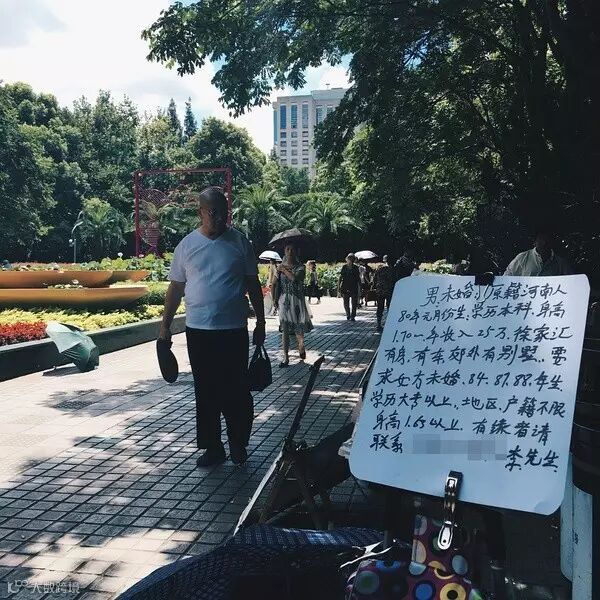 男未婚 原籍河南人
80年元月份生.学历本科.身高
1.70一年收入25万.徐家汇
有房.有车郊外有别墅..要
求女方未婚.84.87.88.年生
学历大专以上.地区.户籍不限
身高1.65以上.有缘者请
联系 李先生
大数跨境